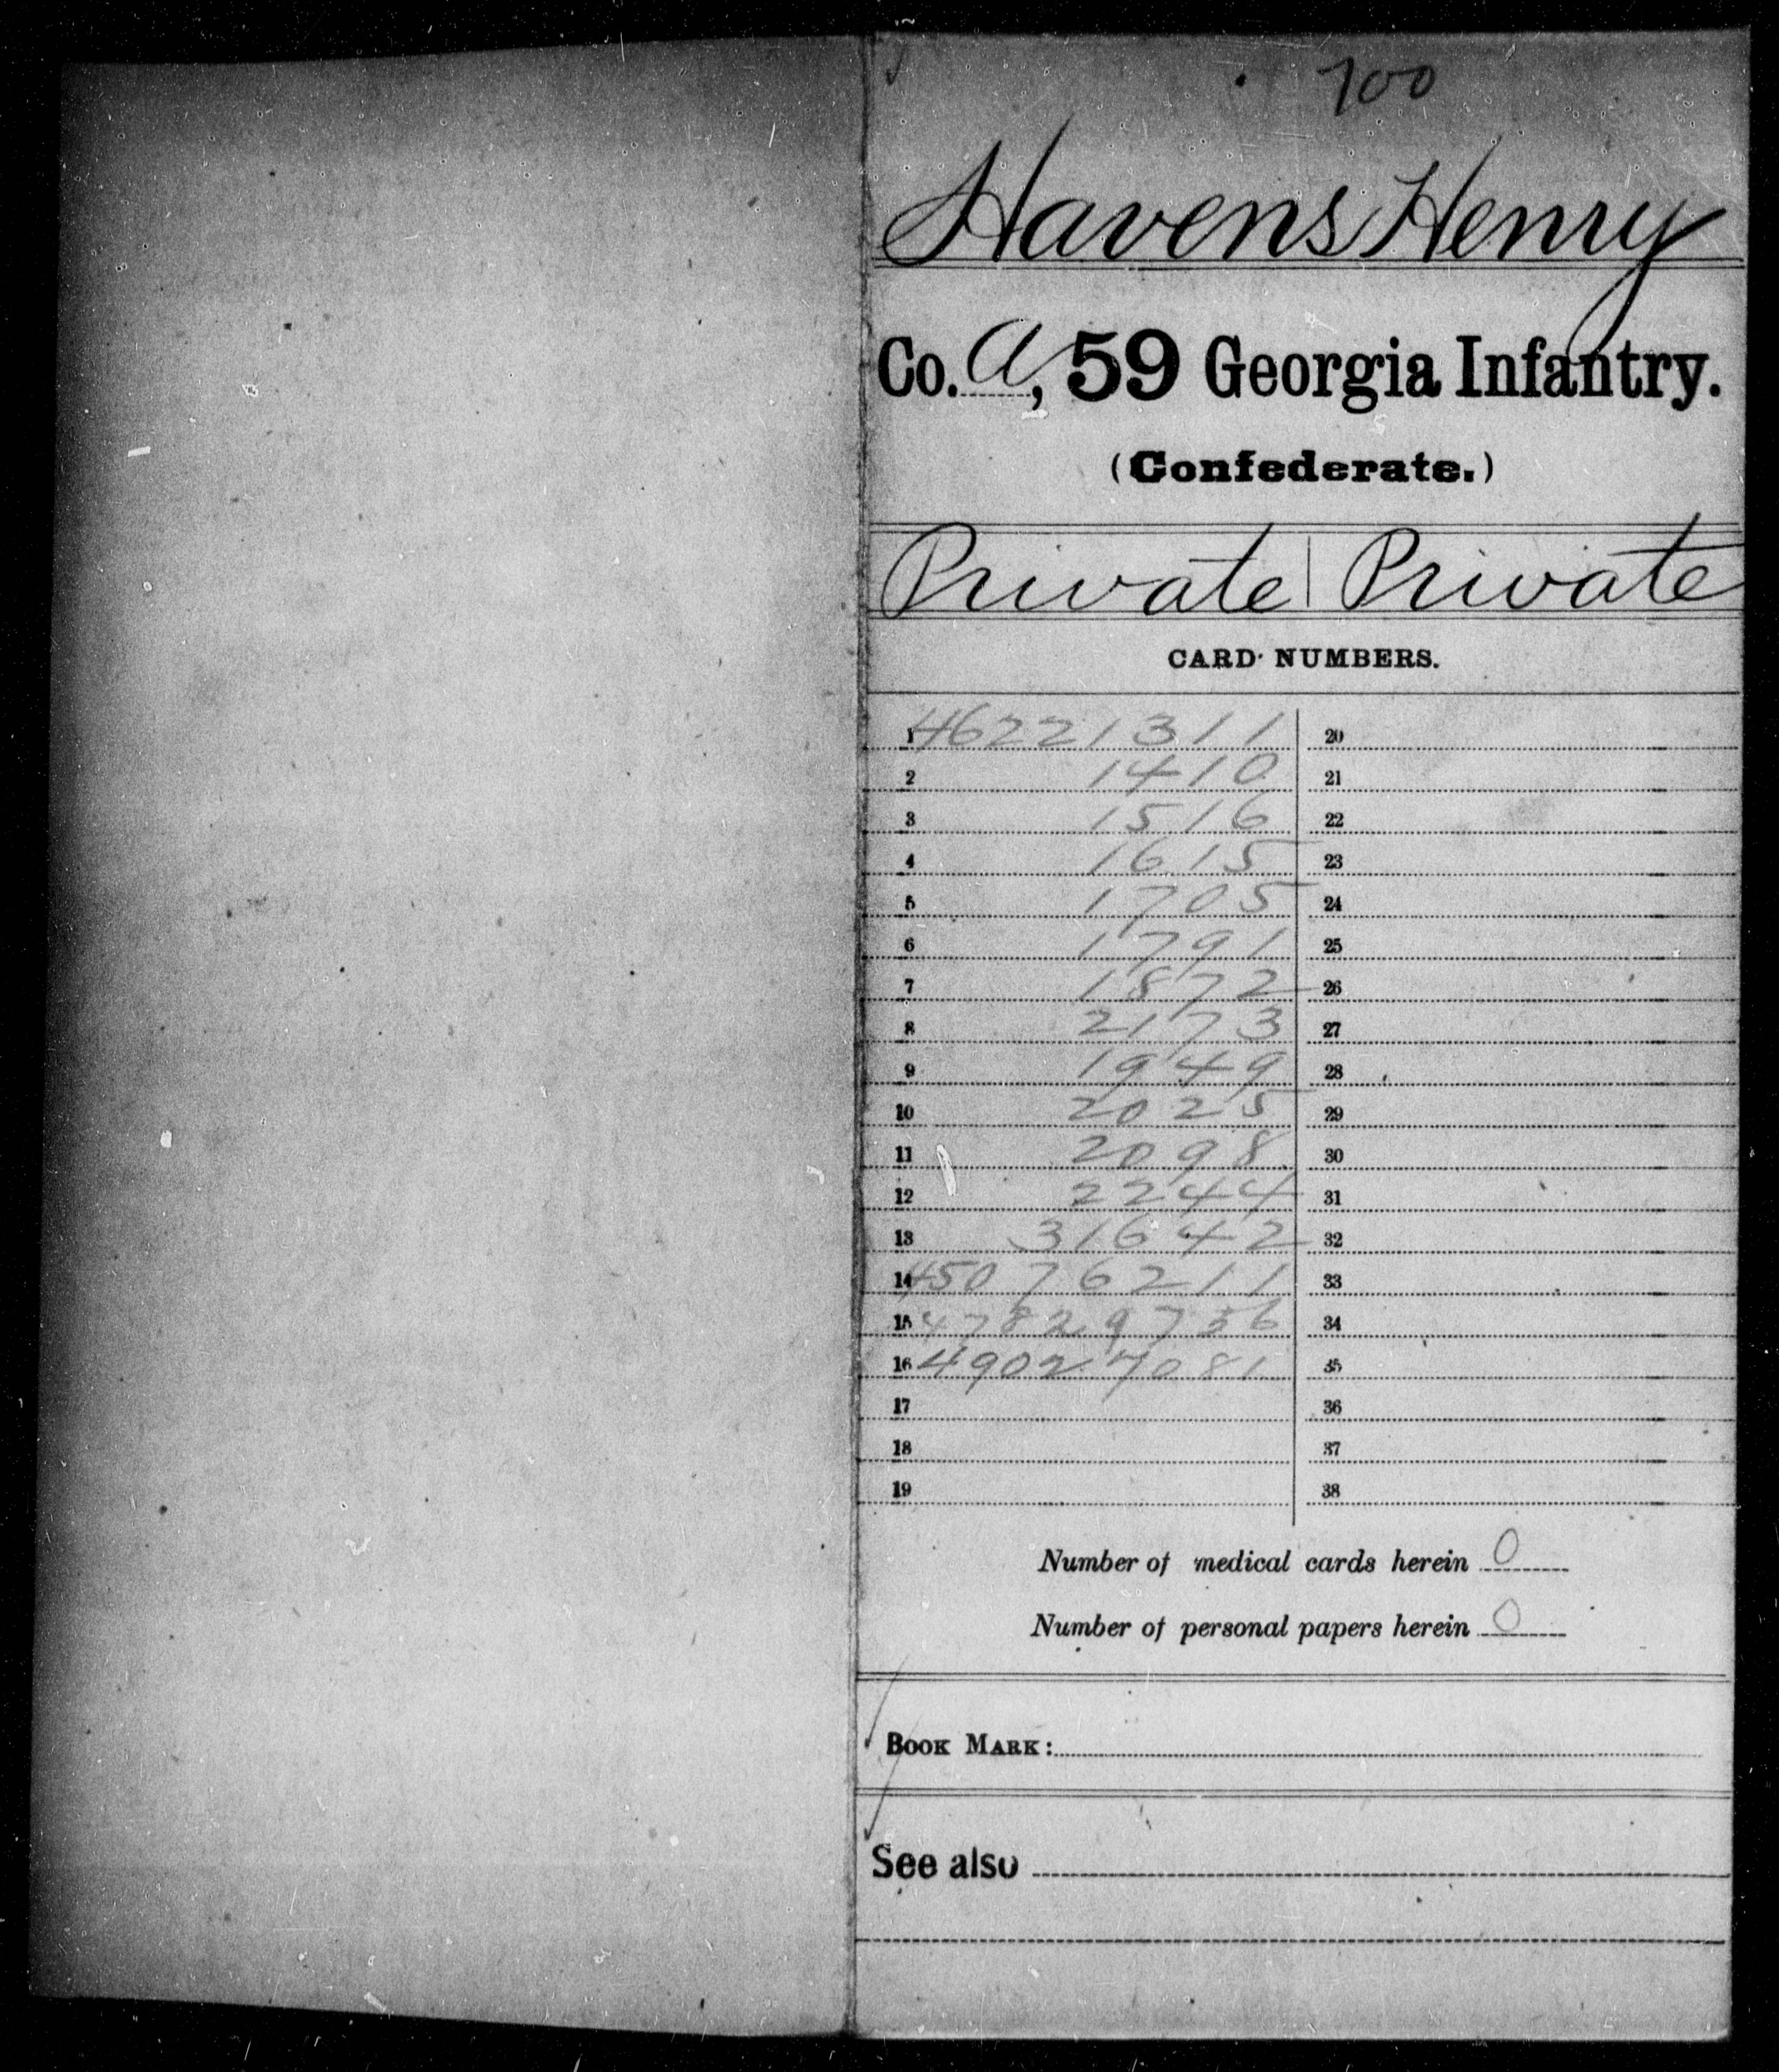 700
Havens Henry
Co. A, 59 Georgia Infantry.
(Confederate.)
Private | Private
CARD NUMBERS.
1 46221311 20
2 1410 21
3 1516 22
4 1615 23
5 1705 24
6 1791 25
7 1872 26
8 2173 27
9 1949 28
10 2025 29
11 2098 30
12 2244 31
13 31642 32
14 45076211 33
15 47829736 34
16 49027081 35
17 36
18 37
19 38
Number of medical cards herein 0
Number of personal papers herein 0
BOOK MARK:
See also